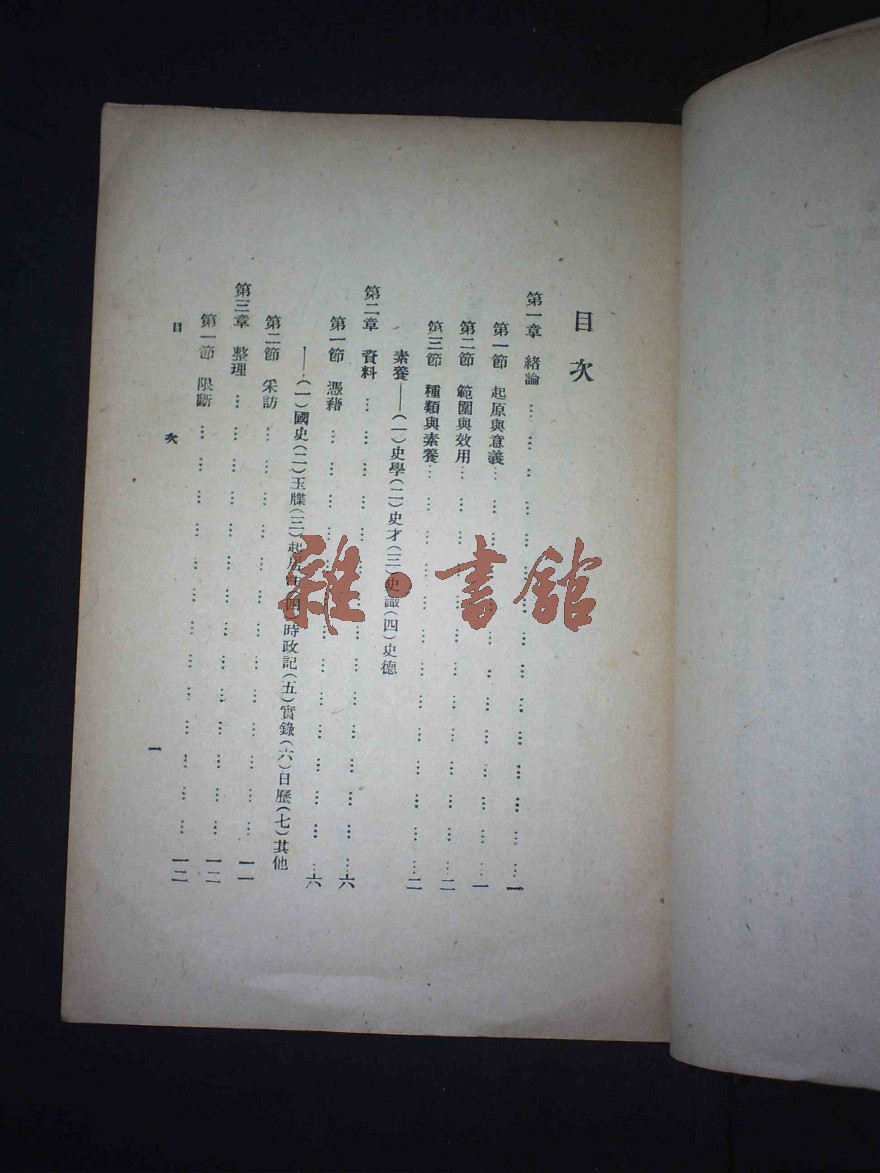 目次
第一章 緒論 … … … … … … … … … … … … … … 一
第一節 起原與意義 … … … … … … … … … … … 一
第二節 範圍與效用 … … … … … … … … … … … 二
第三節 種類與素養 … … … … … … … … … … … 二
素養——(一)史學(二)史才(三)史識(四)史德
第二章 資料 … … … … … … … … … … … … … … 六
第一節 憑藉 … … … … … … … … … … … … … 六
——(一)國史(二)玉牒(三)起居注(四)時政記(五)實錄(六)日歷(七)其他
第二節 采訪 … … … … … … … … … … … … 一一
第三章 整理 … … … … … … … … … … … … … 一二
第一節 限斷 … … … … … … … … … … … … 一二
目次
一
雜·書館